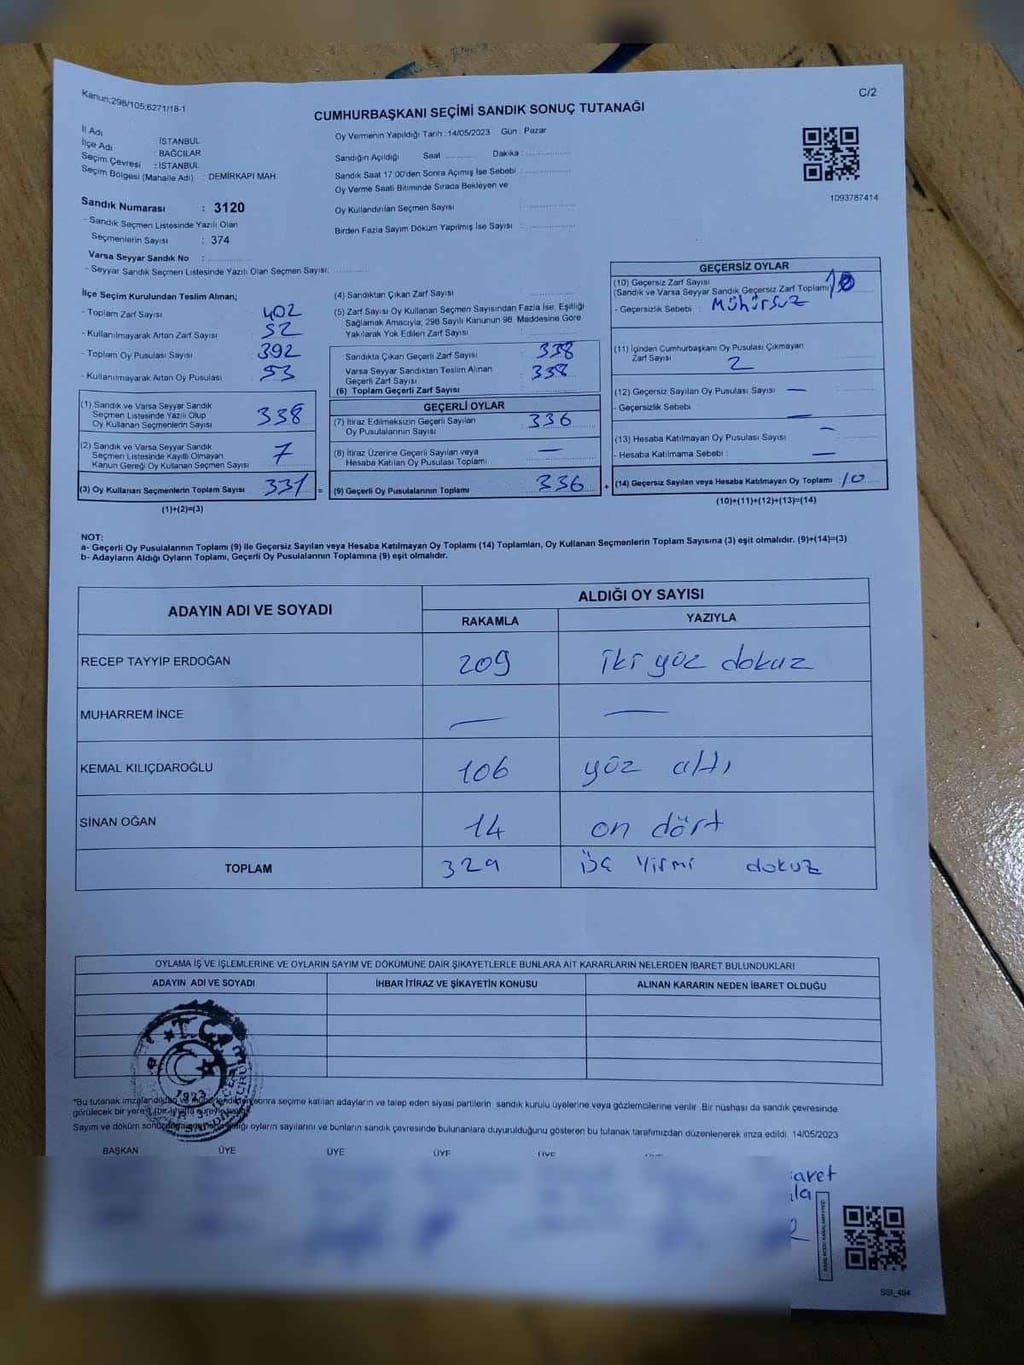 Kanun;298/105;6271/18-1
C/2
CUMHURBAŞKANI SEÇİMİ SANDIK SONUÇ TUTANAĞI
İl Adı : İSTANBUL
İlçe Adı : BAĞCILAR
Seçim Çevresi : İSTANBUL
Seçim Bölgesi (Mahalle Adı) : DEMİRKAPI MAH.
Sandık Numarası : 3120
- Sandık Seçmen Listesinde Yazılı Olan
Seçmenlerin Sayısı : 374
Varsa Seyyar Sandık No :
- Seyyar Sandık Seçmen Listesinde Yazılı Olan Seçmen Sayısı:
Oy Vermenin Yapıldığı Tarih :14/05/2023 Gün : Pazar
Sandığın Açıldığı Saat Dakika :
Sandık Saat 17:00'den Sonra Açımış İse Sebebi :
Oy Verme Saati Bitiminde Sırada Bekleyen ve
Oy Kullandırılan Seçmen Sayısı :
Birden Fazla Sayım Döküm Yapılmış İse Sayısı :
1093787414
İlçe Seçim Kurulundan Teslim Alınan;
- Toplam Zarf Sayısı : 402
- Kullanılmayarak Artan Zarf Sayısı : 52
- Toplam Oy Pusulası Sayısı : 392
- Kullanılmayarak Artan Oy Pusulası : 53
(1) Sandık ve Varsa Seyyar Sandık
Seçmen Listesinde Yazılı Olup
Oy Kullanan Seçmenlerin Sayısı : 338
(2) Sandık ve Varsa Seyyar Sandık
Seçmen Listesinde Kayıtlı Olmayan
Kanun Gereği Oy Kullanan Seçmen Sayısı : 7
(3) Oy Kullanan Seçmenlerin Toplam Sayısı 331 =
(1)+(2)=(3)
(4) Sandıktan Çıkan Zarf Sayısı :
(5) Zarf Sayısı Oy Kullanan Seçmen Sayısından Fazla İse, Eşitliği
Sağlamak Amacıyla, 298 Sayılı Kanunun 98. Maddesine Göre
Yakılarak Yok Edilen Zarf Sayısı :
Sandıkta Çıkan Geçerli Zarf Sayısı : 338
Varsa Seyyar Sandıktan Teslim Alınan
Geçerli Zarf Sayısı : 338
(6) Toplam Geçerli Zarf Sayısı
GEÇERLİ OYLAR
(7) İtiraz Edilmeksizin Geçerli Sayılan
Oy Pusulalarının Sayısı : 336
(8) İtiraz Üzerine Geçerli Sayılan veya
Hesaba Katılan Oy Pusulası Toplamı : —
(9) Geçerli Oy Pusulalarının Toplamı 336 +
GEÇERSİZ OYLAR
(10) Geçersiz Zarf Sayısı
(Sandık ve Varsa Seyyar Sandık Geçersiz Zarf Toplamı) 10
- Geçersizlik Sebebi : Mühürsüz
(11) İçinden Cumhurbaşkanı Oy Pusulası Çıkmayan
Zarf Sayısı 2
(12) Geçersiz Sayılan Oy Pusulası Sayısı : —
- Geçersizlik Sebebi —
(13) Hesaba Katılmayan Oy Pusulası Sayısı : —
- Hesaba Katılmama Sebebi : —
(14) Geçersiz Sayılan veya Hesaba Katılmayan Oy Toplamı : 10
(10)+(11)+(12)+(13)=(14)
NOT:
a- Geçerli Oy Pusulalarının Toplamı (9) ile Geçersiz Sayılan veya Hesaba Katılmayan Oy Toplamı (14) Toplamları, Oy Kullanan Seçmenlerin Toplam Sayısına (3) eşit olmalıdır. (9)+(14)=(3)
b- Adayların Aldığı Oyların Toplamı, Geçerli Oy Pusulalarının Toplamına (9) eşit olmalıdır.
ADAYIN ADI VE SOYADI ALDIĞI OY SAYISI
RAKAMLA YAZIYLA
RECEP TAYYİP ERDOĞAN 209 iki yüz dokuz
MUHARREM İNCE — —
KEMAL KILIÇDAROĞLU 106 yüz altı
SİNAN OĞAN 14 on dört
TOPLAM 329 üç yirmi dokuz
OYLAMA İŞ VE İŞLEMLERİNE VE OYLARIN SAYIM VE DÖKÜMÜNE DAİR ŞİKAYETLERLE BUNLARA AİT KARARLARIN NELERDEN İBARET BULUNDUKLARI
ADAYIN ADI VE SOYADI İHBAR İTİRAZ VE ŞİKAYETİN KONUSU ALINAN KARARIN NEDEN İBARET OLDUĞU
T.C.
1923
*Bu tutanak sonra seçime katılan adayların ve talep eden siyasi partilerin sandık kurulu üyelerine veya gözlemcilerine verilir. Bir nüshası da sandık çevresinde
görülecek bir yere
Sayım ve döküm oyların sayılarını ve bunların sandık çevresinde bulunanlara duyurulduğunu gösteren bu tutanak tarafımızdan düzenlenerek imza edildi. 14/05/2023
BAŞKAN ÜYE ÜYE ÜYE ÜYE